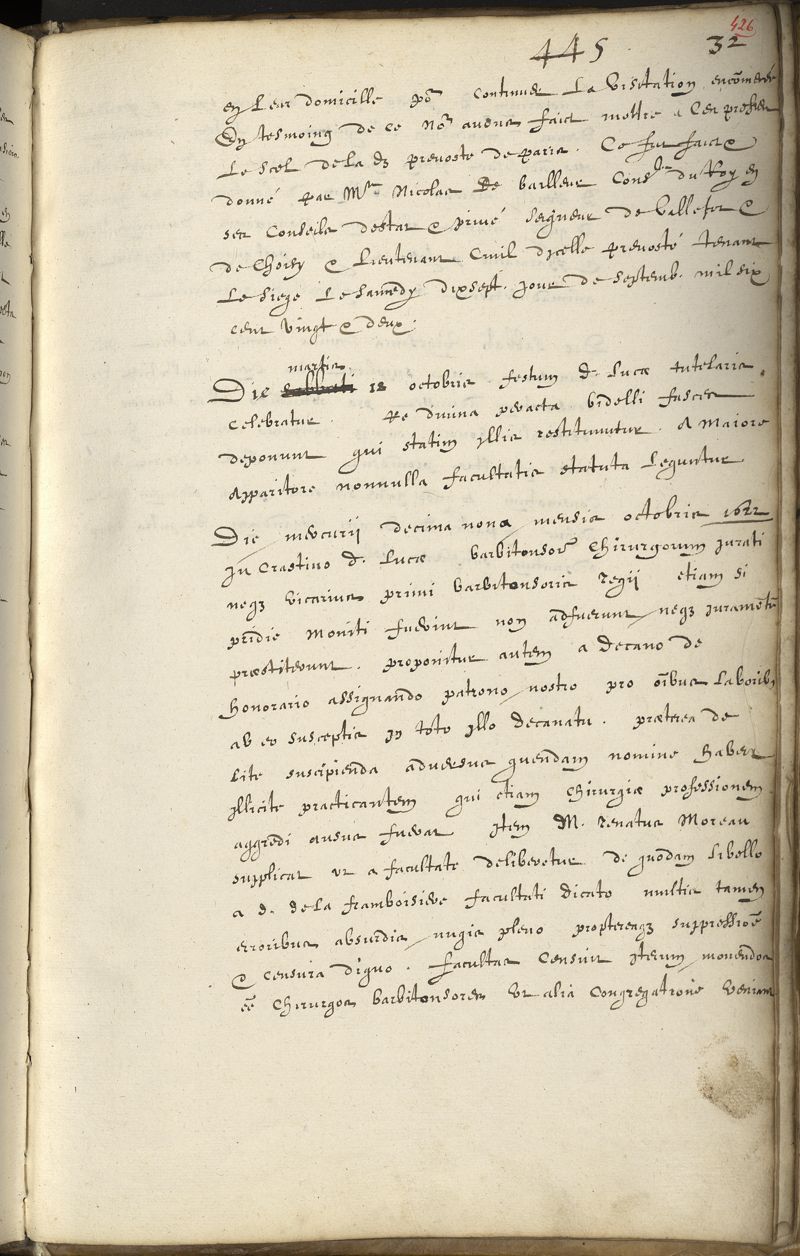 426
445 32
en leur domicille po.r continuer la visitation encōmencée
En tesmoing de ce No.s avons faict mettre a ces présentes
le scel de lad. prevosté de paris. Ce fut faict &
donné par M.re Nicolas De bailleul Cons.er du Roy en
ses Conseils destat & privé seigneur de Valletot &
de Choisy & lieutenant Civil d'icelle prevosté tenant
le siege le samedy dixsept. jour de septemb. mil six
cens vingt & deux.
martis
Die sabbati 18 octobris festum d. Lucæ tutelaris
celebratur. Re divina peracta bidelli fasces
deponunt qui statim illis restituuntur. A Maiore
Apparitore nonnulla facultatis statuta leguntur
Die mercurii decima nona mensis octobris 1622
In Crastino d. Lucæ barbitonsorū Chirurgorum jurati
neqꝫ vicarius primi barbitonsoris regii etiam si
pridie moniti fuerint non adfuerunt neqꝫ juramentū
præstiterunt. proponitur autem a Decano de
honorario assignando patrono nostro pro oībus laboribꝫ
ab eo susceptis in toto illo decanatu. præterea de
lite suscipienda adversus quendam nomine haberz
illicite practicantem qui etiam chirurgiæ professionem
aggredi ausus fuerat Item M. Renatus Moreau
supplicat ut a facultate deliberetur de quodam libello
a d. de la framboisiere facultati dicato multis tamen
erroribus absurdis nugis pleno proptereaqꝫ suppressiōe
& censura digno. facultas censuit iterum monendos
eē chirurgos barbitonsores ut alia congregatione veniant